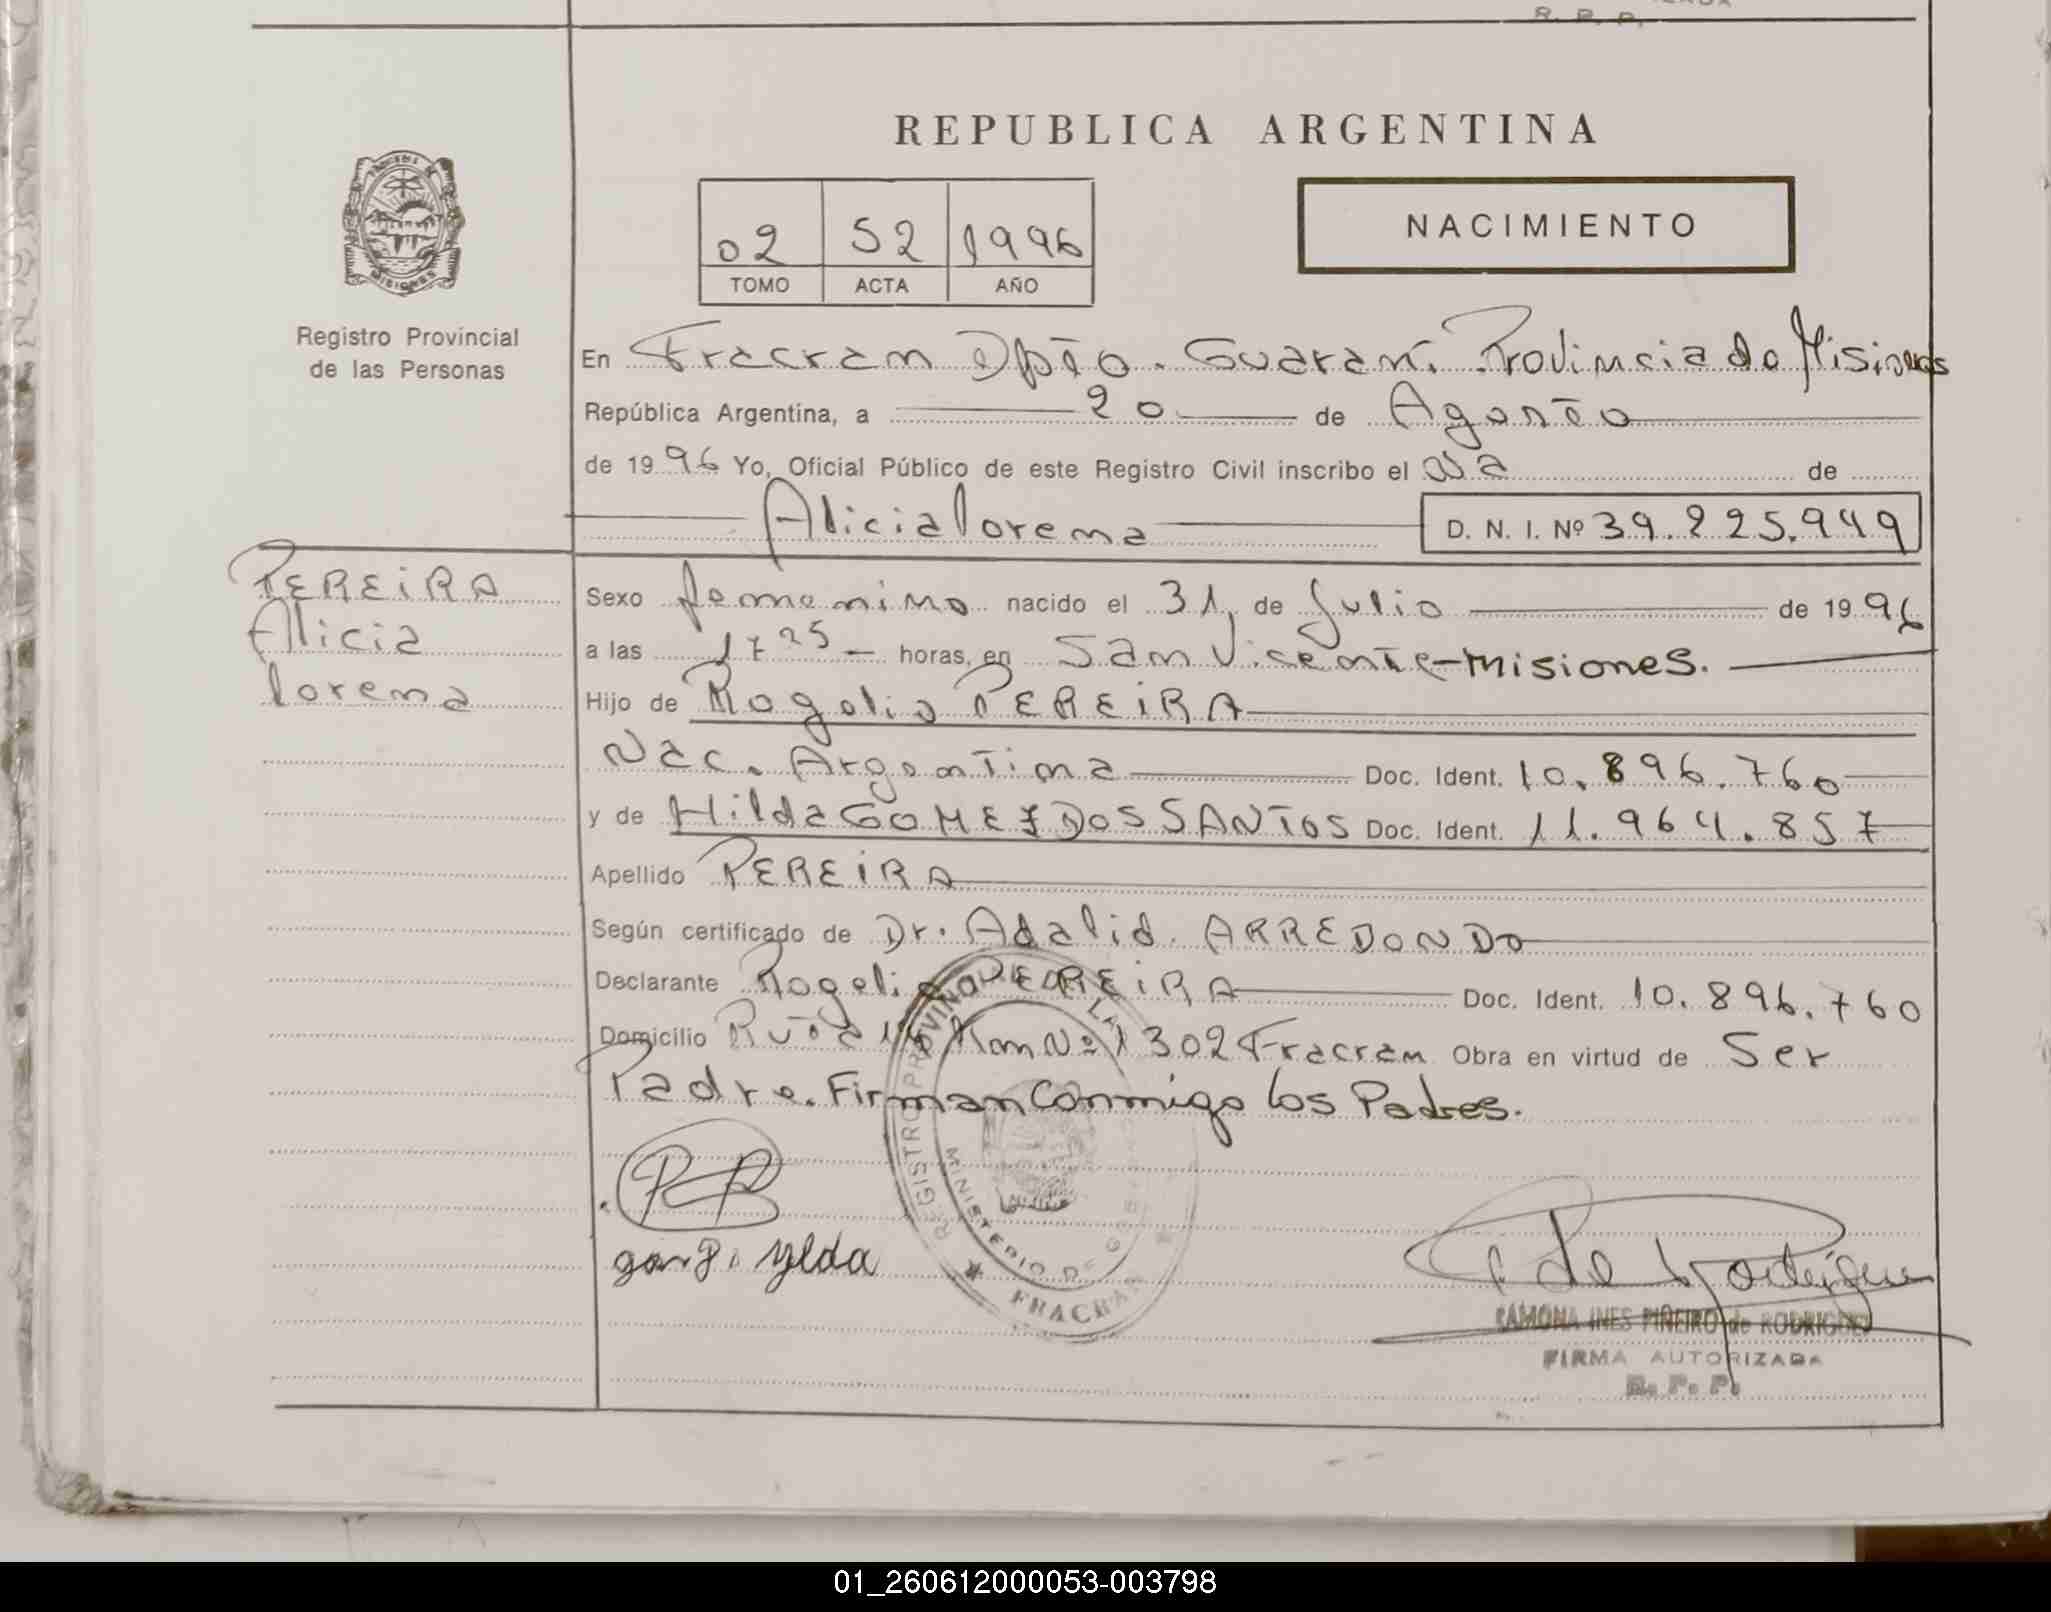 R. P. P.
REPUBLICA ARGENTINA
MISIONES
Registro Provincial
de las Personas
02 52 1996
TOMO ACTA AÑO
NACIMIENTO
En Fracran Dpto. Guaraní. Provincia de Misiones
República Argentina, a 20 de Agosto
de 1996 Yo, Oficial Público de este Registro Civil inscribo el Na de
Alicia lorena D. N. I. Nº 39.225.949
PEREiRA
Alicia
lorena
Sexo femenino nacido el 31, de Julio de 1996
a las 17 25 horas, en San Vicente-Misiones.
Hijo de Rogelio PEREiRA
Nac. Argentina Doc. Ident. 10.896.760
y de Hilda GOMEZ DOS SANTOS Doc. Ident. 11.964.857
Apellido PEREiRA
Según certificado de Dr. Adalid ARREDONDO
Declarante Rogelio PEREiRA Doc. Ident. 10.896.760
Domicilio Ruta 14 Km Nº 1302 Fracran Obra en virtud de Ser
Padre. Firman Conmigo los Padres.
REGISTRO PROVINCIAL DE LA
MINISTERIO DE
FRACRAN
ylda
RAMONA INES PIÑEIRO de RODRIGUEZ
FIRMA AUTORIZADA
R. P. P.
01_260612000053-003798